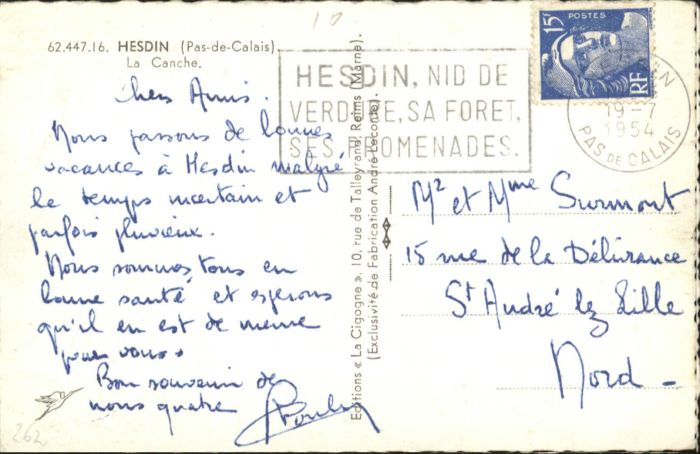 10
62.447.16. HESDIN (Pas-de-Calais).
La Canche.
Chers Amis.
Nous passons de bonnes
vacances à Hesdin malgré
le temps incertain et
parfois pluvieux.
Nous sommes tous en
bonne santé et espérons
qu'il en est de même
pour vous.
Bon souvenir de
nous quatre
262
Editions « La Cigogne », 10, rue de Talleyrand, Reims (Marne).
(Exclusivité de Fabrication André Leconte).
HESDIN, NID DE
VERDURE, SA FORET,
SES PROMENADES.
15F POSTES
RF
19-7
1954
PAS DE CALAIS
Mr et Mme Surmont
15 rue de la Délivrance
St André lez Lille
Nord -